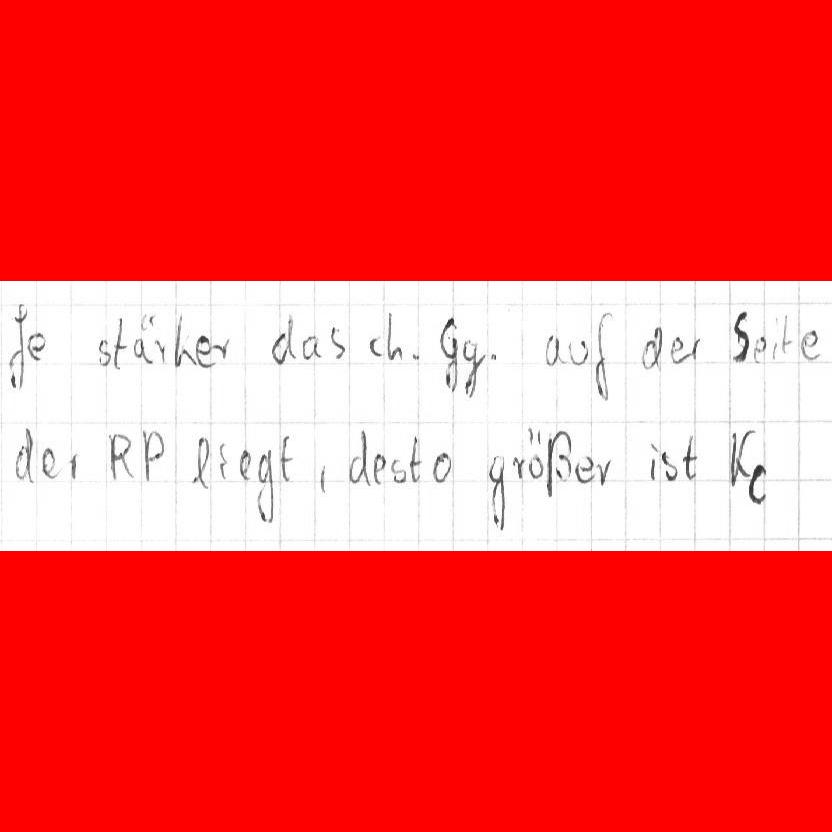 Je stärker das ch. Gg. auf der Seite
der RP liegt, desto größer ist Kc